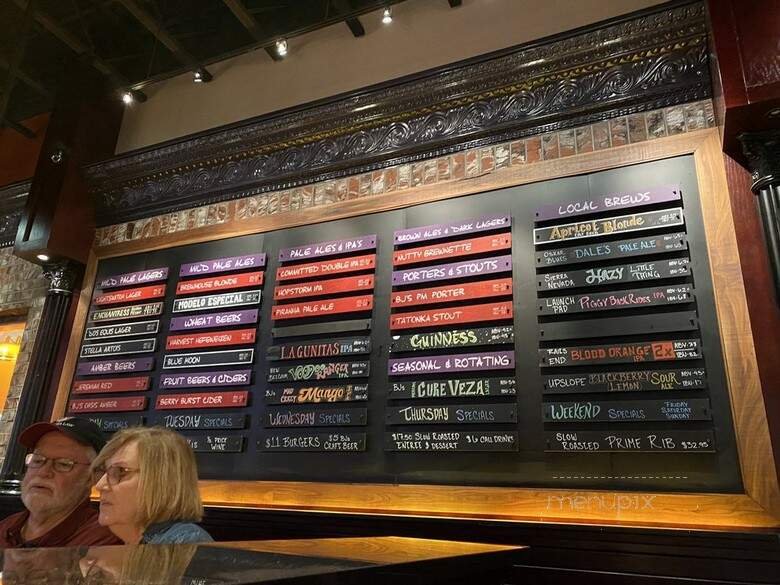 MILD PALE LAGERS
LIGHTSWITCH LAGER
BJ'S EQIS LAGER
STELLA ARTOIS
AMBER BEERS
JEREMIAH RED
BJ'S OASIS AMBER
MILD PALE ALES
BREWHOUSE BLONDE
MODELO ESPECIAL
WHEAT BEERS
HARVEST HEFEWEIZEN
BLUE MOON
FRUIT BEERS & CIDERS
BERRY BURST CIDER
TUESDAY SPECIALS
½ PRICE WINE
PALE ALES & IPA'S
COMMITTED DOUBLE IPA
HOPSTORM IPA
PIRANHA PALE ALE
LAGUNITAS IPA
NEW BELGIUM VOODOO RANGER
MAD CRAZY MANGO
WEDNESDAY SPECIALS
$11 BURGERS $5 BJs CRAFT BEER
BROWN ALES & DARK LAGERS
NUTTY BREWNETTE
PORTERS & STOUTS
BJ'S PM PORTER
TATONKA STOUT
GUINNESS
SEASONAL & ROTATING
BJs CURE VEZA
THURSDAY SPECIALS
$17.50 SLOW ROASTED ENTREE & DESSERT $6 CALL DRINKS
LOCAL BREWS
APRICOT BLONDE
OSKAR BLUES DALE'S PALE ALE
SIERRA NEVADA HAZY LITTLE THING
LAUNCH PAD PIGGY BACK RIDES IPA
RAILS END BLOOD ORANGE 2x
UPSLOPE BLACKBERRY LEMON SOUR ALE
WEEKEND SPECIALS FRIDAY SATURDAY SUNDAY
SLOW ROASTED PRIME RIB $32.95
menupix